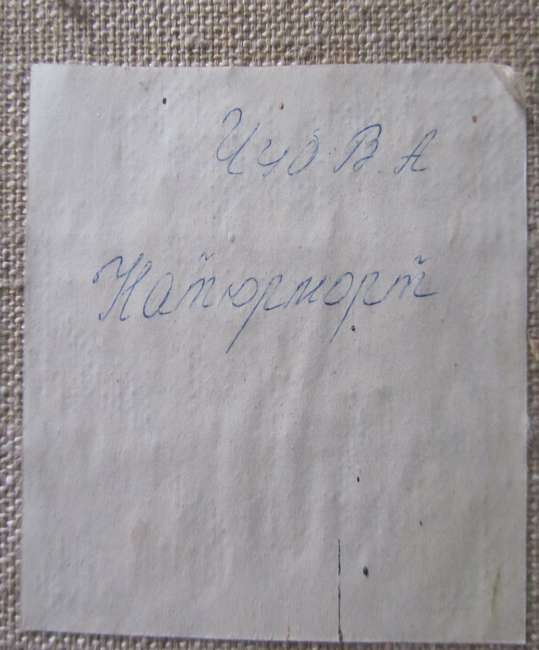 Чуб В. А
Натюрморт